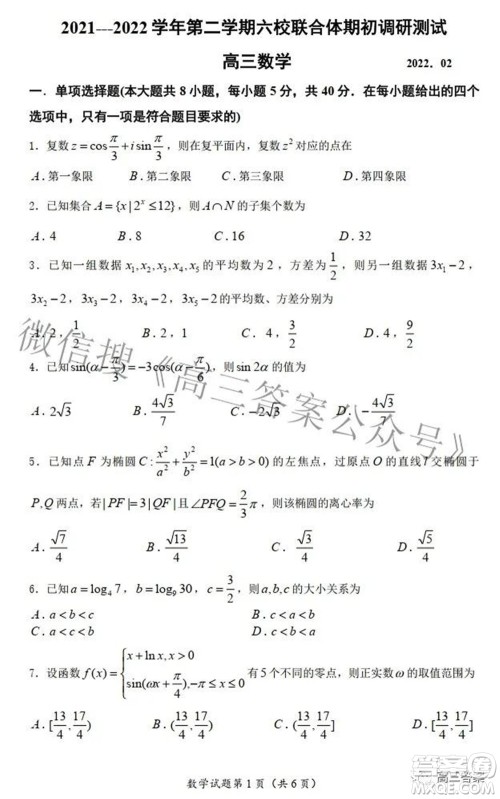 2021---2022 学年第二学期六校联合体期初调研测试
高三数学
2022．02
一．单项选择题(本大题共 8 小题，每小题 5 分，共 40 分．在每小题给出的四个
选项中，只有一项是符合题目要求的)
1．复数 z = cos π/3 + i sin π/3，则在复平面内，复数 z² 对应的点在
A．第一象限 B．第二象限 C．第三象限 D．第四象限
2．已知集合 A = {x | 2^x ≤ 12}，则 A∩N 的子集个数为
A．4 B．8 C．16 D．32
3．已知一组数据 x₁, x₂, x₃, x₄, x₅ 的平均数为 2，方差为 1/2，则另一组数据 3x₁−2，
3x₂−2，3x₃−2，3x₄−2，3x₅−2 的平均数、方差分别为
A．2，1/2 B．2，1 C．4，3/2 D．4，9/2
4．已知 sin(α−π/3) = −3cos(α−π/6)，则 sin2α 的值为
A．2√3 B．4√3/7 C．−2√3 D．−4√3/7
5．已知点 F 为椭圆 C: x²/a² + y²/b² = 1(a > b > 0) 的左焦点，过原点 O 的直线 l 交椭圆于
P,Q 两点，若 |PF| = 3|QF| 且 ∠PFQ = 2/3 π，则该椭圆的离心率为
A．√7/4 B．√13/4 C．√3/4 D．√5/4
6．已知 a = log₄7，b = log₉30，c = 3/2，则 a,b,c 的大小关系为
A．a < b < c B．b < a < c
C．c < a < b D．a < c < b
7．设函数 f(x) = { x + ln x, x > 0
sin(ωx + π/4), −π ≤ x ≤ 0 有 5 个不同的零点，则正实数 ω 的取值范围为
A．[13/4, 17/4) B．(13/4, 17/4) C．(13/4, 17/4] D．[13/4, 17/4]
数学试题第 1 页（共 6 页）
微信搜《高三答案公众号》
高三答案